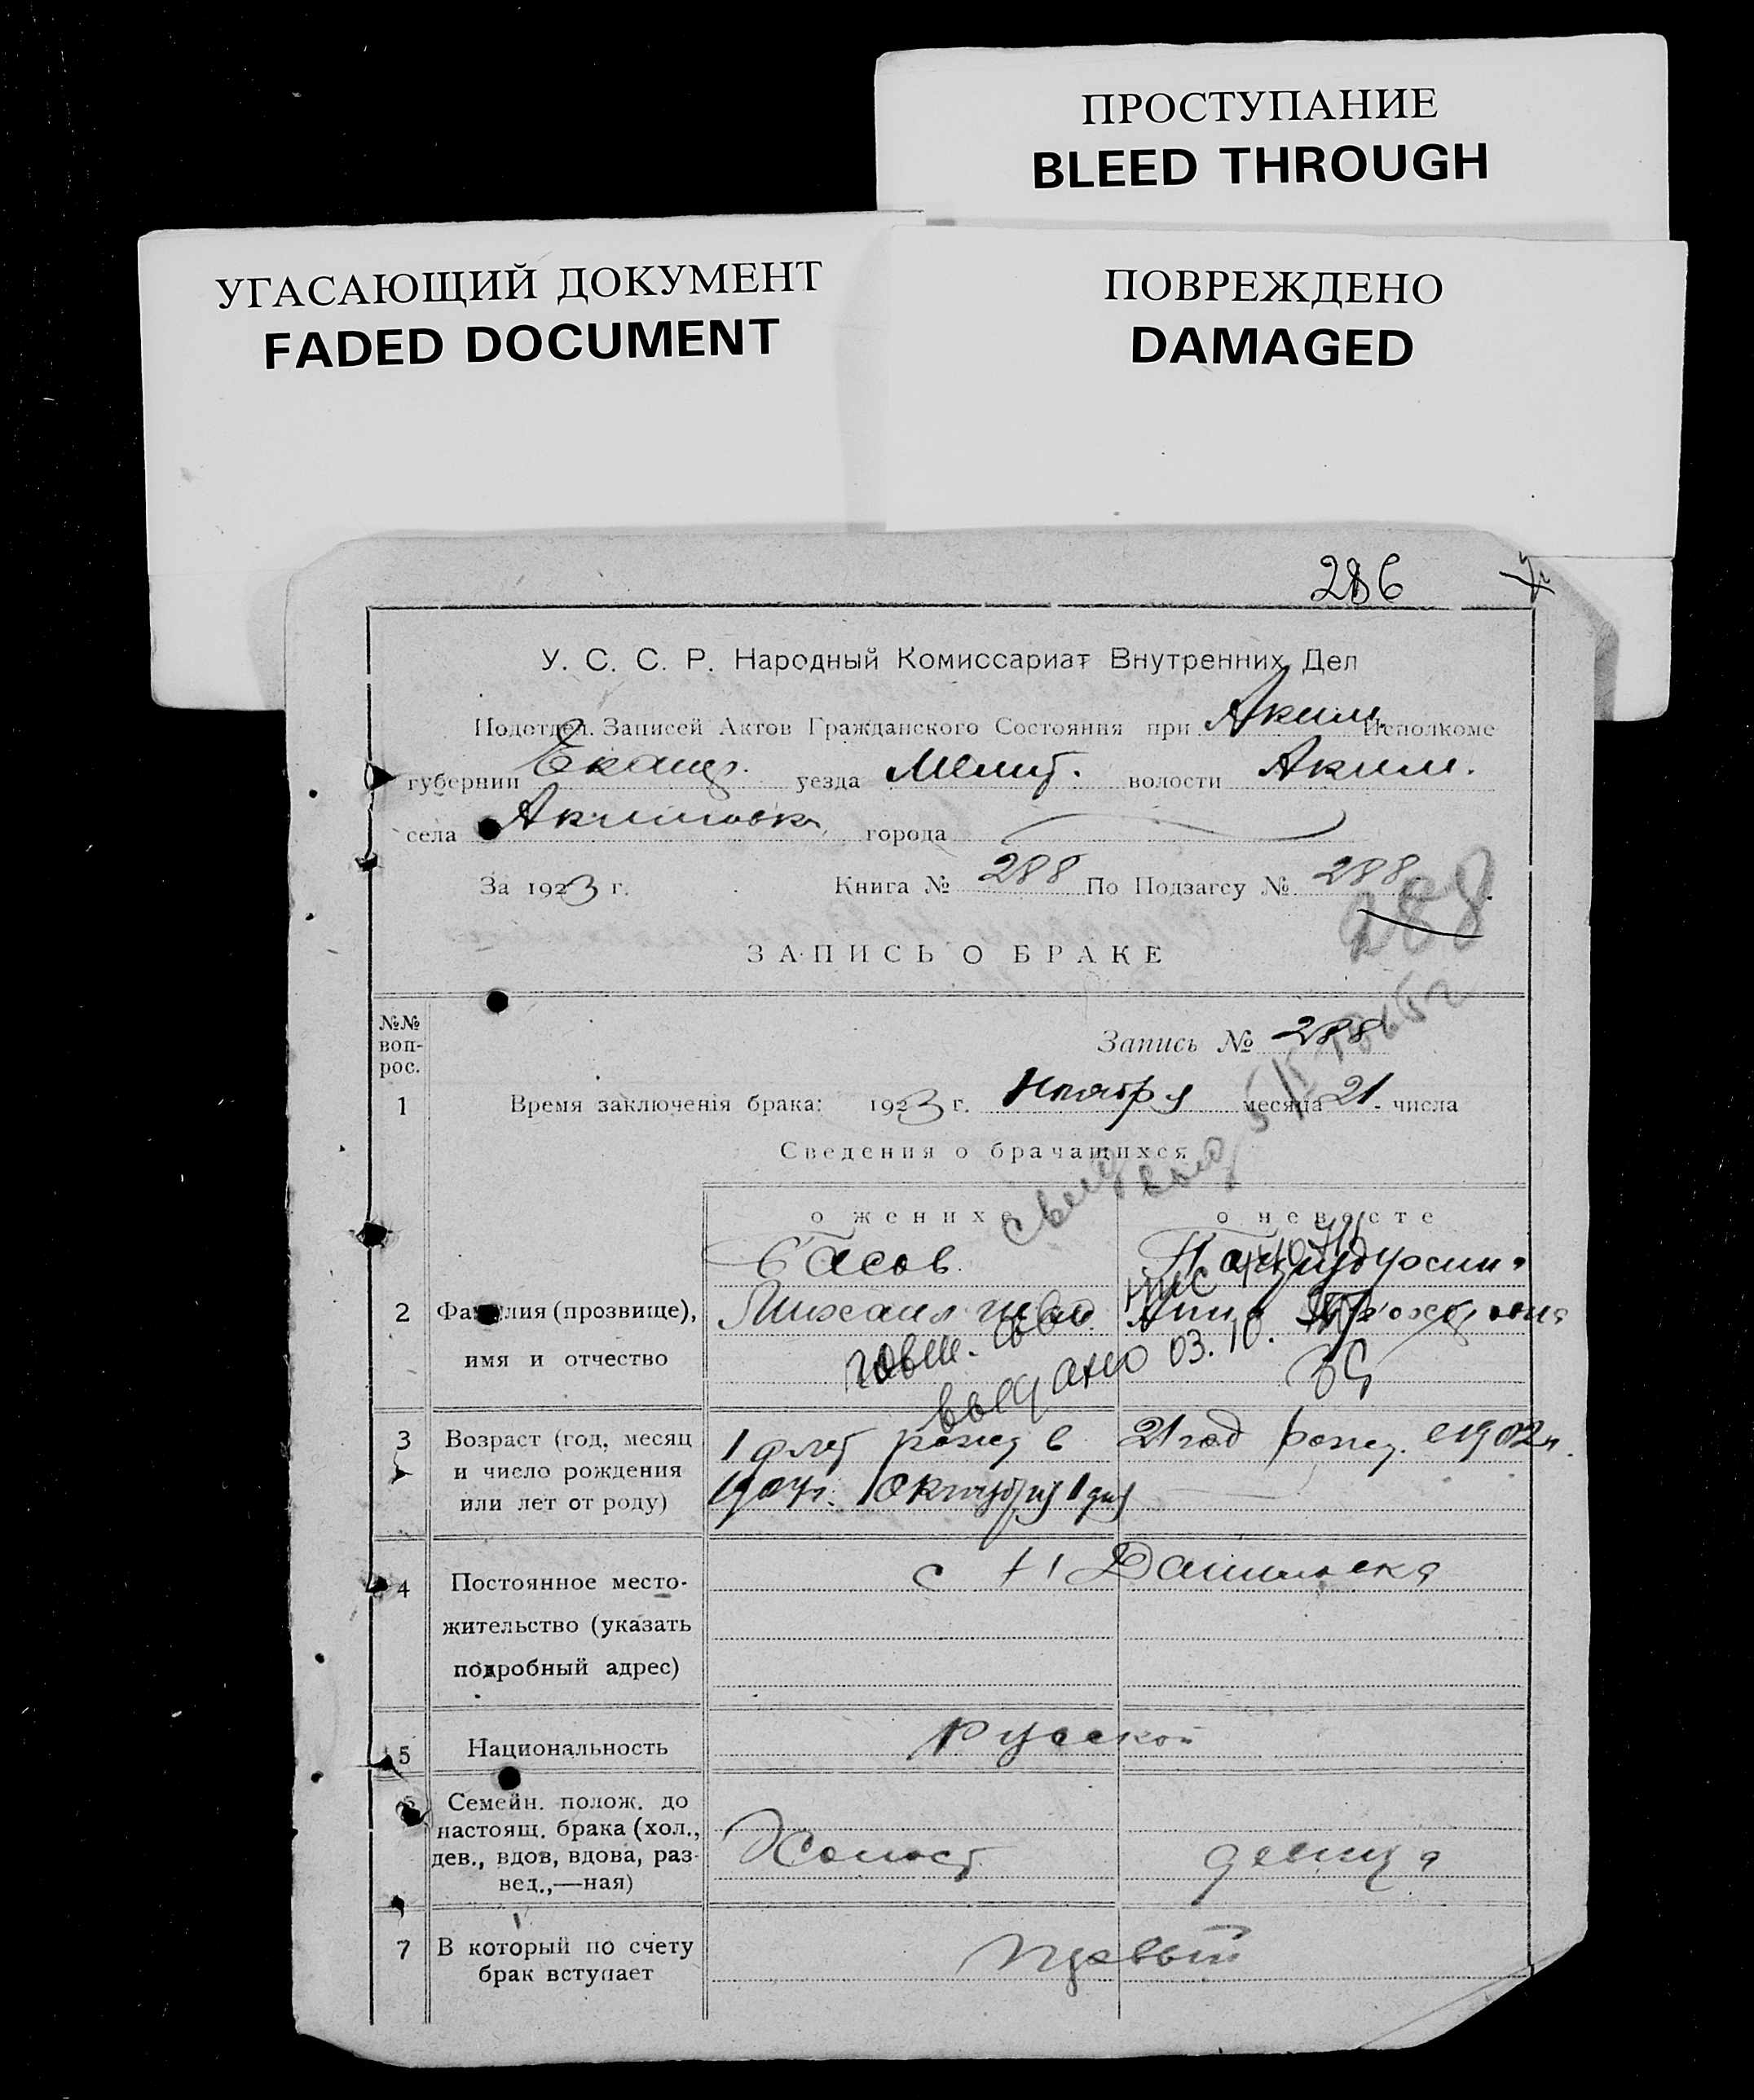 ПРОСТУПАНИЕ
BLEED THROUGH
УГАСАЮЩИЙ ДОКУМЕНТ
FADED DOCUMENT
ПОВРЕЖДЕНО
DAMAGED
286
У. С. С. Р. Народный Комиссариат Внутренних Дел
Подотдел. Записей Актов Гражданского Состояния при Аким. Исполкоме
губернии Екат. уезда Мелит. волости Аким.
села Акимовка города
За 1923 г. Книга № 288 По Подзагсу № 288
288
ЗАПИСЬ О БРАКЕ
№№ воп-
рос.
Запись № 288
1 Время заключенія брака: 1923 г. Ноября месяца 21 числа
Сведения о брачащихся
о женихе о невесте
Басов
2 Фамилия (прозвище), Михаил Анна
имя и отчество
выдано 03.10.
3 Возраст (год, месяц 19 лет рожд в 21 год рожд. в 1902 г.
и число рождения
или лет от роду) 1904 г. Октября 1 дня
4 Постоянное место- с Н Даниловка
жительство (указать
подробный адрес)
5 Национальность Русской
6 Семейн. полож. до
настоящ. брака (хол.,
дев., вдов, вдова, раз- Холост девица
вед.,—ная)
7 В который по счету первый
брак вступает